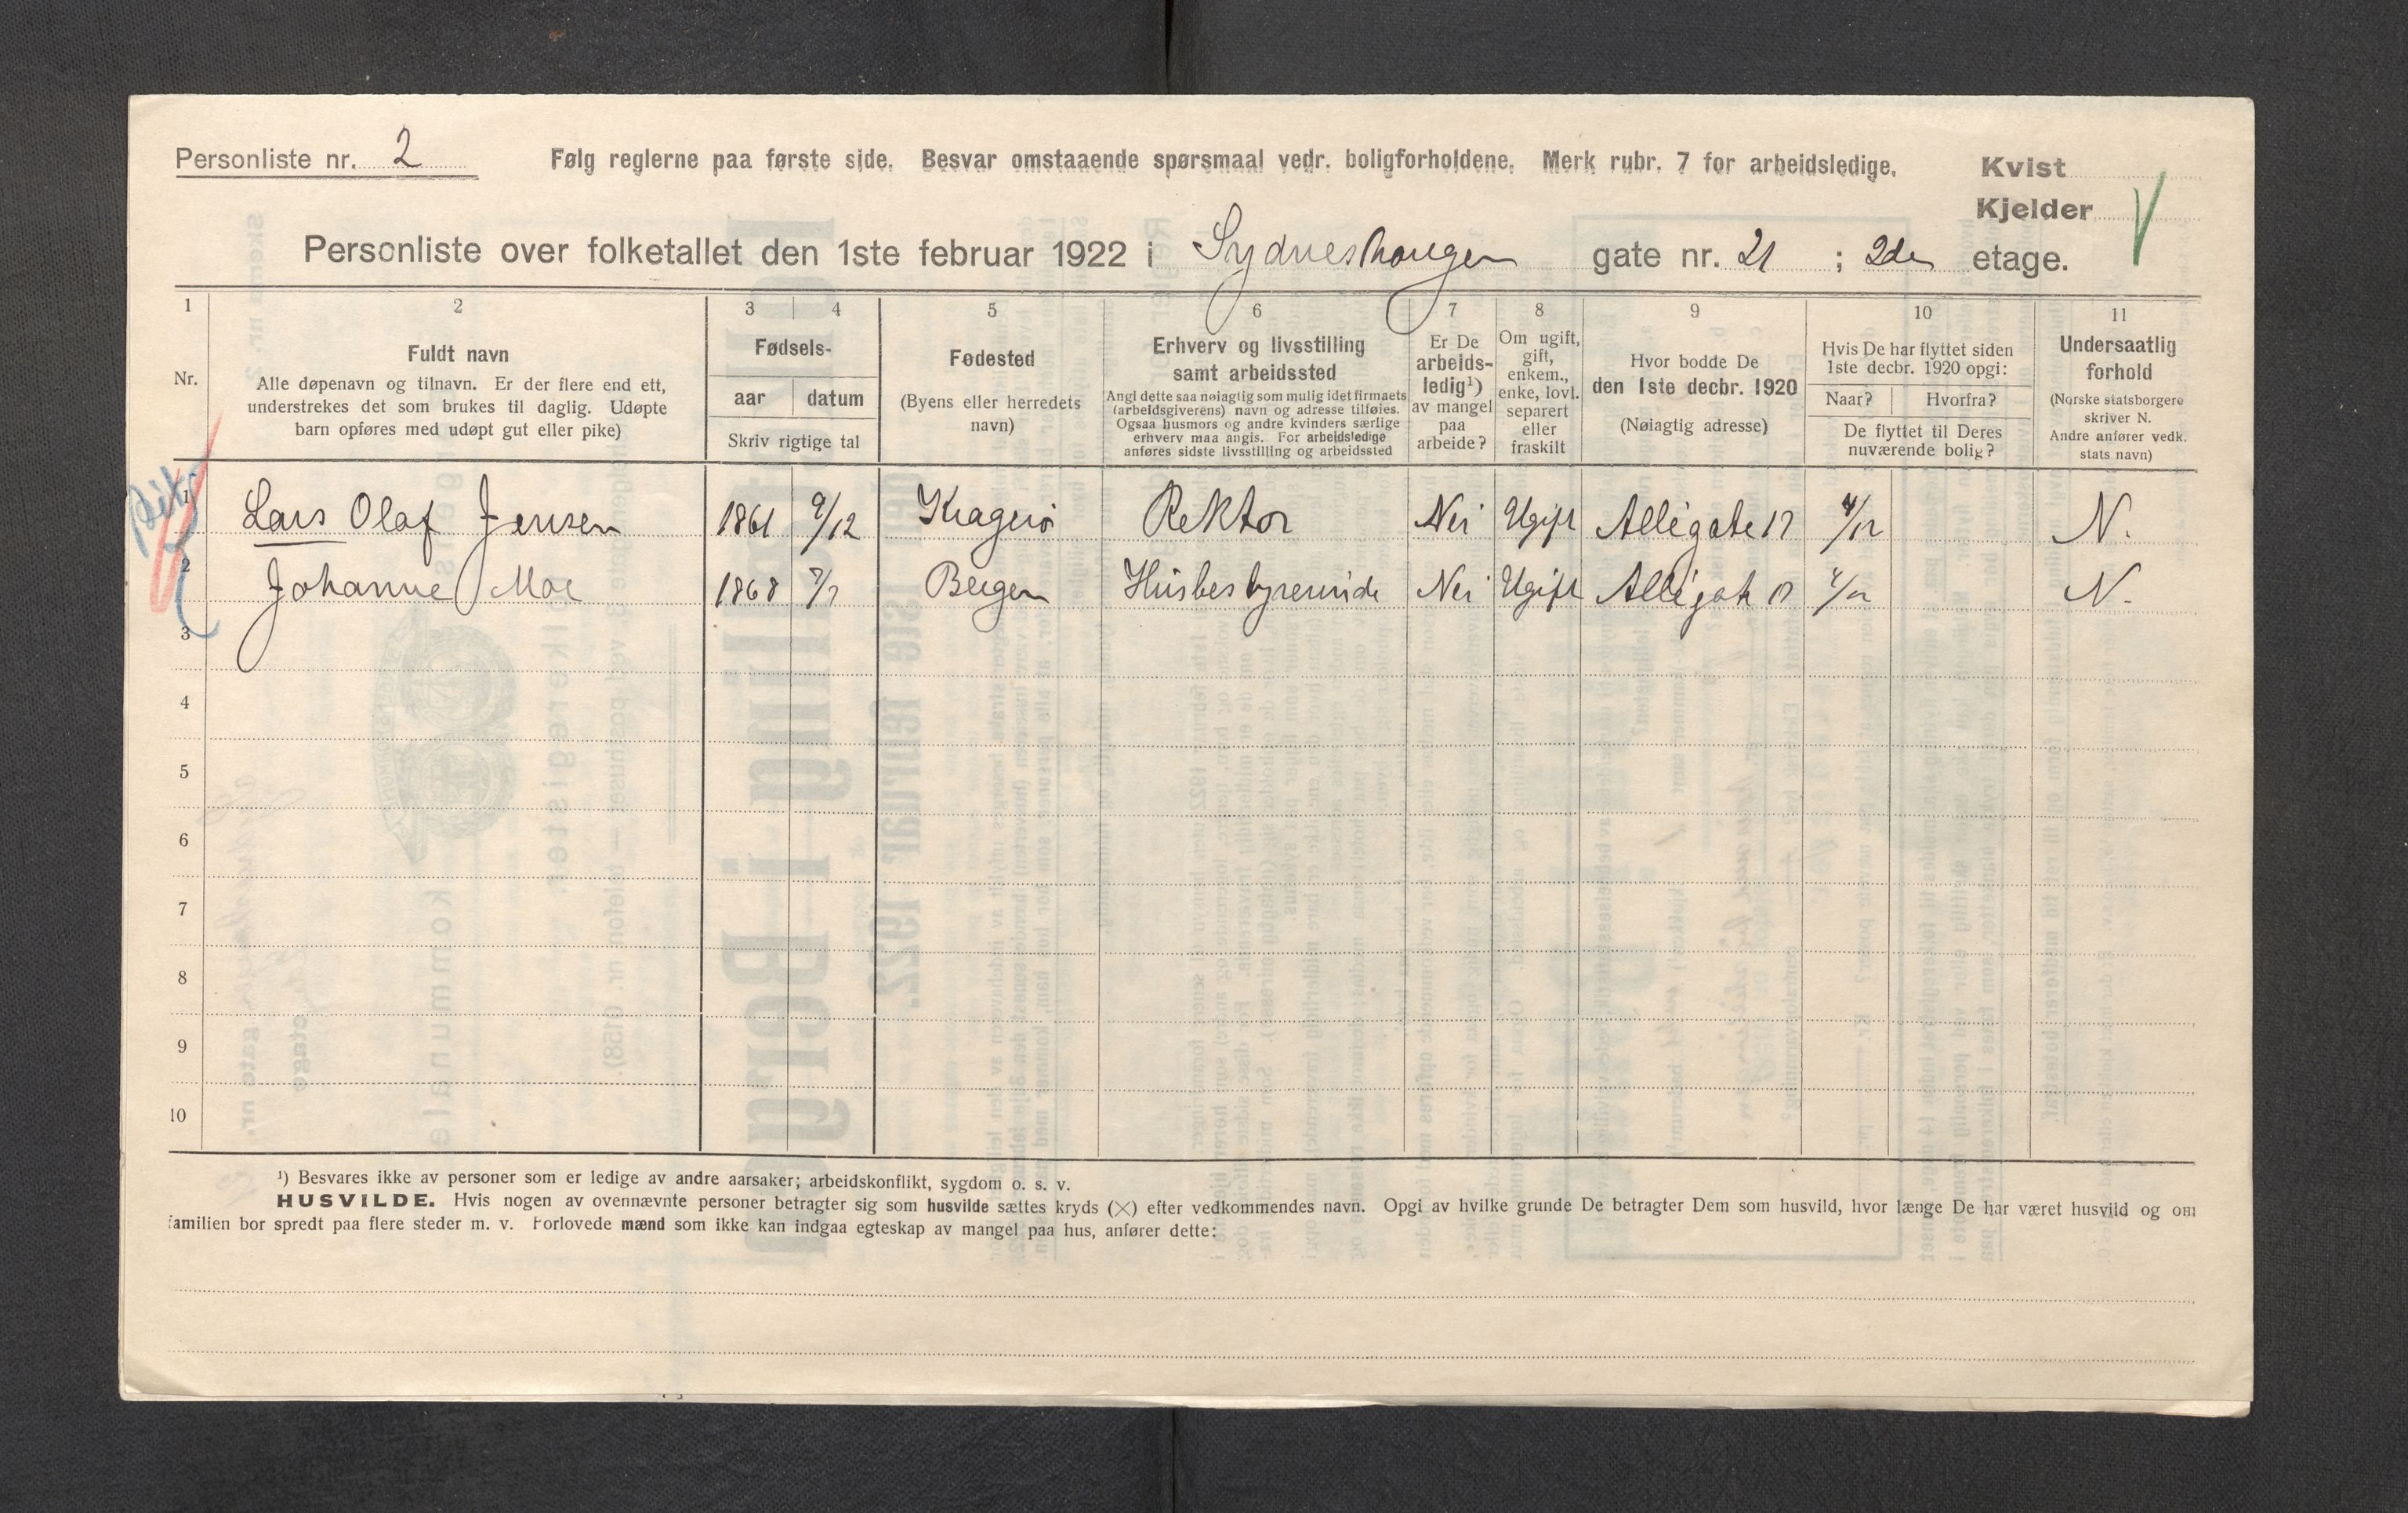 Personliste nr. 2
Følg reglerne paa første side. Besvar omstaaende spørsmaal vedr. boligforholdene. Merk rubr. 7 for arbeidsledige.
Kvist
Kjelder
Personliste over folketallet den 1ste februar 1922 i Sydneshaugen gate nr. 21 ; 2den etage.
1 2 3 4 5 6 7 8 9 10 11
Nr.
Fuldt navn
Alle døpenavn og tilnavn. Er der flere end ett,
understrekes det som brukes til daglig. Udøpte
barn opføres med udøpt gut eller pike)
Fødsels-
aar datum
Skriv rigtige tal
Fødested
(Byens eller herredets
navn)
Erhverv og livsstilling
samt arbeidssted
Angi dette saa nøiagtig som mulig idet firmaets
(arbeidsgiverens) navn og adresse tilføies.
Ogsaa husmors og andre kvinders særlige
erhverv maa angis. For arbeidsledige
anføres sidste livsstilling og arbeidssted
Er De
arbeids-
ledig¹)
av mangel
paa
arbeide?
Om ugift,
gift,
enkem.,
enke, lovl.
separert
eller
fraskilt
Hvor bodde De
den 1ste decbr. 1920
(Nøiagtig adresse)
Hvis De har flyttet siden
1ste decbr. 1920 opgi:
Naar? Hvorfra?
De flyttet til Deres
nuværende bolig?
Undersaatlig
forhold
(Norske statsborgere
skriver N.
Andre anfører vedk.
stats navn)
1 Lars Olaf Jensen 1861 9/12 Kragerø Rektor Nei Ugift Allégate 17 4/12 N.
2 Johanne Moe 1868 Bergen Husbestyrerinde Nei Ugift Allégate N.
3
4
5
6
7
8
9
10
¹) Besvares ikke av personer som er ledige av andre aarsaker; arbeidskonflikt, sygdom o. s. v.
HUSVILDE. Hvis nogen av ovennævnte personer betragter sig som husvilde sættes kryds (×) efter vedkommendes navn. Opgi av hvilke grunde De betragter Dem som husvild, hvor længe De har været husvild og om
familien bor spredt paa flere steder m. v. Forlovede mænd som ikke kan indgaa egteskap av mangel paa hus, anfører dette: